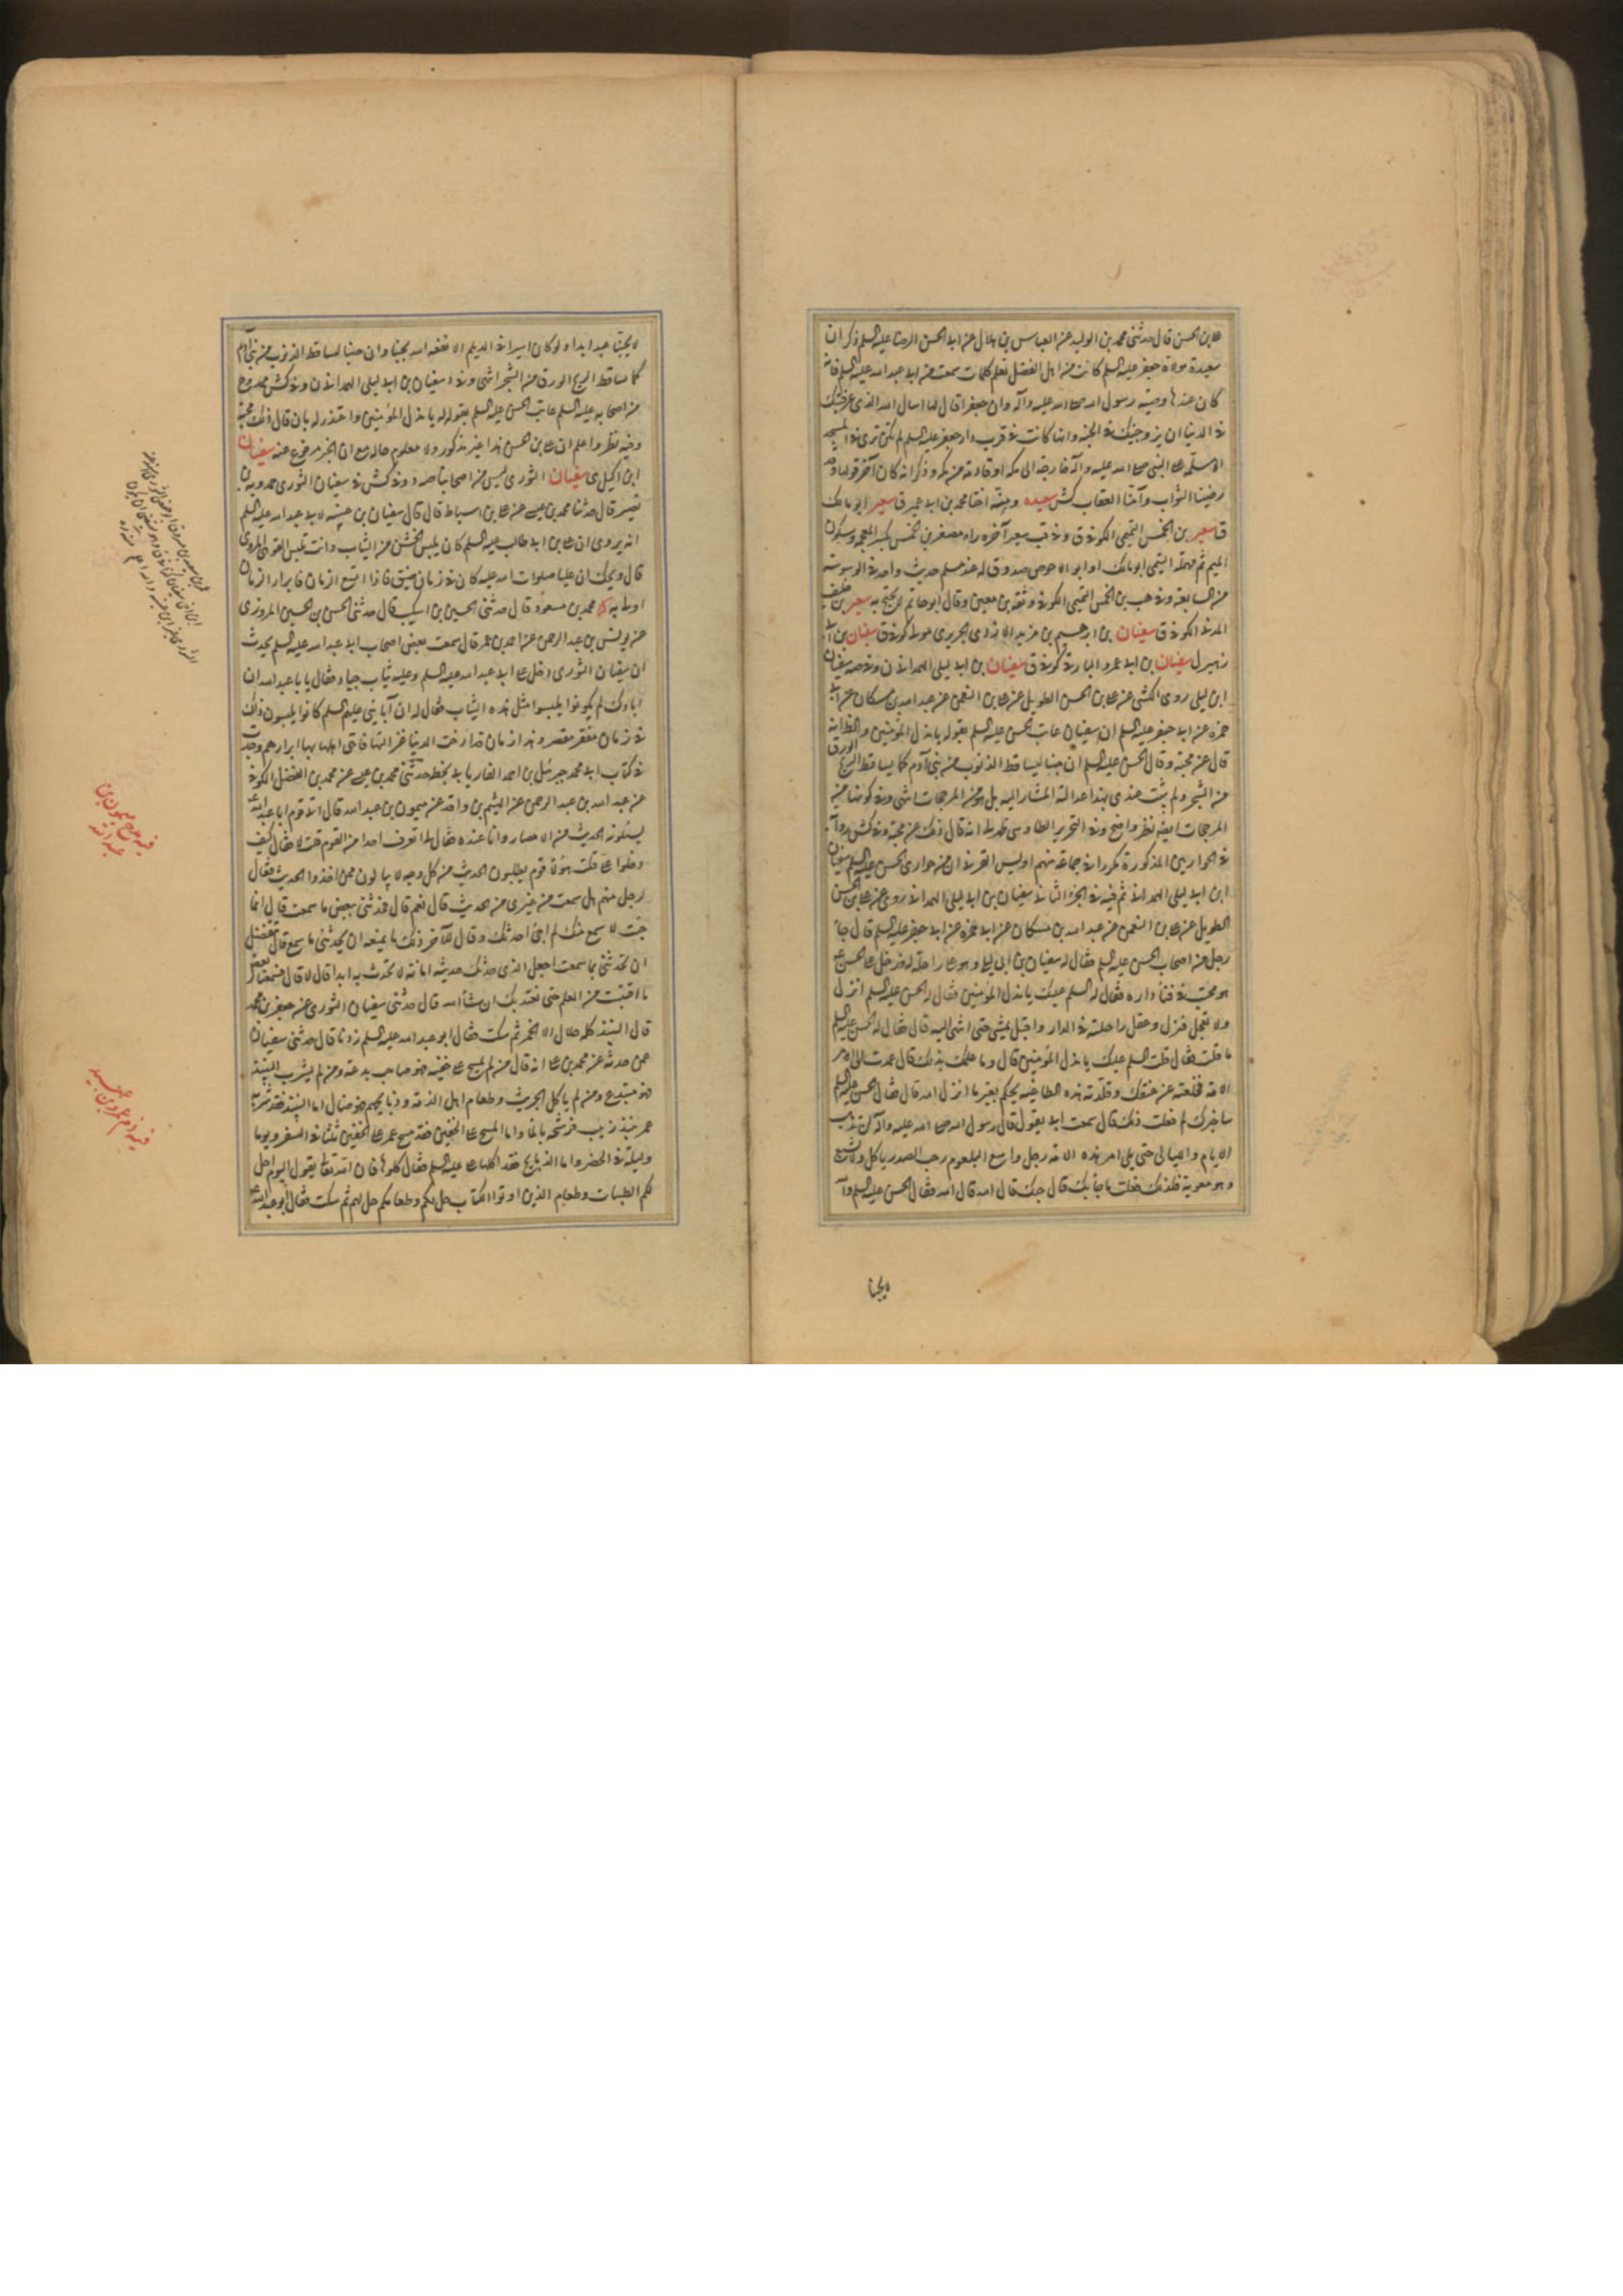 علي بن الحسن قال حدثني محمد بن الوليد عن العباس بن هلال عن ابي الحسن الرضا عليه السلم ذكر ان
سعيدة مولاة جعفر عليه السلم كانت من اهل الفضل تعلم كلمات سمعت من ابي عبد الله عليه السلم فانه
كان عندها وصية رسول الله صلى الله عليه وآله وان جعفرا قال لها اسال الله الذي عرفنيك
في الدنيا ان يزوجنيك في الجنة وانها كانت في قرب دار جعفر عليه السلم لم تكن ترى في المسجد
الا مسلمة على النبي صلى الله عليه وآله خارجة الى مكة او قادمة من مكة وذكر انه كان آخر قولها قد
رضينا الثواب وآمنا العقاب كش سعيده ومنة اختا محمد بن ابي عمير ق سعير ابو مالك
ق سعير بن الخمس التميمي الكوفي ق وفي قب سعير آخره راء مصغر بن الخمس بكسر المعجمة وسكون
الميم ثم مهملة التيمي ابو مالك او ابو الاحوص صدوق له عند مسلم حديث واحد في الوسوسة
من السابعة وفي هب بن الخمس التميمي الكوفي وثقه بن معين وقال ابو حاتم لا يحتج به سعير بن خليف
المدني الكوفي ق سفيان بن ابرهيم بن مزيد الازدي الجريري مولا كوفي ق سفيان بن ابي
زهير ل سفيان بن ابي عمرو البارقي كوفي ق سفيان بن ابي ليلى الهمداني ن وفي صه سفيان
ابن ليلى روى الكشي عن علي بن الحسن الطويل عن علي بن النعمن عن عبد الله بن مسكان عن ابي
حمزة عن ابي جعفر عليه السلم ان سفيان عاتب الحسن عليه السلم بقوله يا مذل المؤمنين والظ انه
قال عن محبة وقال الحسن عليه السلم ان حبنا ليساقط الذنوب من بني آدم كما يساقط الريح الورق
من الشجر ولم يثبت عندي بهذا عدالة المشار اليه بل هو من المرجحات انتهى وفي كونها من
المرجحات ايضا نظر واضح وفي التحرير الطاوسي ظهر لي انه قال ذلك عن محبة وفي كش
في الحواريين المذكورة مكررا في جماعة منهم اويس القرني ان من حواري الحسن عليه السلم سفيان
ابن ابي ليلى الهمداني ثم فيه في الجزء الثاني سفيان بن ابي ليلى الهمداني روى عن علي بن الحسن
الطويل عن علي بن النعمن عن عبد الله بن مسكان عن ابي حمزة عن ابي جعفر عليه السلم قال جاء
رجل من اصحاب الحسن عليه السلم يقال له سفيان بن ابي ليلى وهو على راحلة له فدخل على الحسن ع
وهو محتب في فناء داره فقال له السلم عليك يا مذل المؤمنين فقال له الحسن عليه السلم انزل
ولا تعجل فنزل وعقل راحلته في الدار واقبل يمشي حتى انتهى اليه قال فقال له الحسن عليه السلم
ما قلت فقال قلت السلم عليك يا مذل المؤمنين قال وما علمك بذلك قال عمدت الى الامر
الامة فخلعته عن عنقك وقلدته هذه الطاغية يحكم بغير ما انزل الله قال فقال الحسن عليه السلم
ساخبرك لم فعلت ذلك قال سمعت ابي يقول قال رسول الله صلى الله عليه وآله لن تذهب
الايام والليالي حتى يلي امر هذه الامة رجل واسع البلعوم رحب الصدر ياكل ولا يشبع
وهو معوية فلذلك فعلت ما جاء بك قال حبك قال الله قال الله فقال الحسن عليه السلم والله
لا يحبنا
لا يحبنا عبد ابدا ولو كان اسيرا في الديلم الا نفعه الله بحبنا وان حبنا ليساقط الذنوب من بني آدم
كما يساقط الريح الورق من الشجر انتهى وفي د سفيان بن ابي ليلى الهمداني ن وفي كش ممدوح
من اصحابه عليه السلم عاتب الحسن عليه السلم بقوله له يا مذل المؤمنين واعتذر له بان قال ذلك محبة
وفيه نظر واعلم ان علي بن الحسن هذا غير مذكور ولا معلوم حاله مع ان الخبر مرفوع عنه سفيان
ابن اكيل ى سفيان الثوري ليس من اصحابنا صه د وفي كش في سفيان الثوري حمدويه بن
نصير قال حدثنا محمد بن عيسى عن علي بن اسباط قال قال سفيان بن عيينه لابي عبد الله عليه السلم
انه يروى ان علي بن ابي طالب عليه السلم كان يلبس الخشن من الثياب وانت تلبس القوهي المروي
قال ويحك ان عليا صلوات الله عليه كان في زمان ضيق فاذا اتسع الزمان فابرار الزمان
اولى به كا محمد بن مسعود قال حدثني الحسين بن اشكيب قال حدثني الحسن بن الحسين المروزي
عن يونس بن عبد الرحمن عن احمد بن عمر قال سمعت بعض اصحاب ابي عبد الله عليه السلم يحدث
ان سفيان الثوري دخل على ابي عبد الله عليه السلم وعليه ثياب جياد فقال يا با عبد الله ان
اباءك لم يكونوا يلبسوا مثل هذه الثياب فقال له ان آبائي عليهم السلم كانوا يلبسون ذلك
في زمان مقفر مقصر وهذا زمان قد ارخت الدنيا عزاليها فاحق اهلها بها ابرارهم وجدت
في كتاب ابي محمد جبرئيل بن احمد الفاريابي بخطه حدثني محمد بن عيسى عن محمد بن الفضل الكوفي
عن عبد الله بن عبد الرحمن عن الهيثم بن واقد عن ميمون بن عبد الله قال اتى قوم ابا عبد الله ع
يسئلونه الحديث من الامصار وانا عنده فقال لي اتعرف احدا من القوم قلت لا فقال كيف
دخلوا على قلت هؤلاء قوم يطلبون الحديث من كل وجه لا يبالون ممن اخذوا الحديث فقال
رجل منهم هل سمعت من غيري من الحديث قال نعم قال فحدثني ببعض ما سمعت قال انما
جئت لاسمع منك لم اجئ احدثك وقال للآخر ذلك ما يمنعه ان يحدثني ما سمع قال تتفضل
ان تحدثني بما سمعت اجعل الذي حدثك حديثه امانة لا تحدث به ابدا قال لا قال فسمعنا بعض
ما اقتبست من العلم حتى نعتد بك ان شاء الله قال حدثني سفيان الثوري عن جعفر بن محمد
قال النبيذ كله حلال الا الخمر ثم سكت فقال ابو عبد الله عليه السلم زدنا قال حدثني سفيان
عمن حدثه عن محمد بن علي انه قال من لم يمسح على خفيه فهو صاحب بدعة ومن لم يشرب النبيذ
فهو مبتدع ومن لم ياكل الجريث وطعام اهل الذمة وذبايحهم فهو ضال اما النبيذ فقد شربه
عمر نبيذ زبيب فرشحه بالماء واما المسح على الخفين فقد مسح عمر على الخفين ثلثا في السفر ويوما
وليلة في الحضر واما الذبايح فقد اكلها علي عليه السلم فقال كلوها فان الله تعالى يقول اليوم احل
لكم الطيبات وطعام الذين اوتوا الكتاب حل لكم وطعامكم حل لهم ثم سكت فقال ابو عبد الله ع